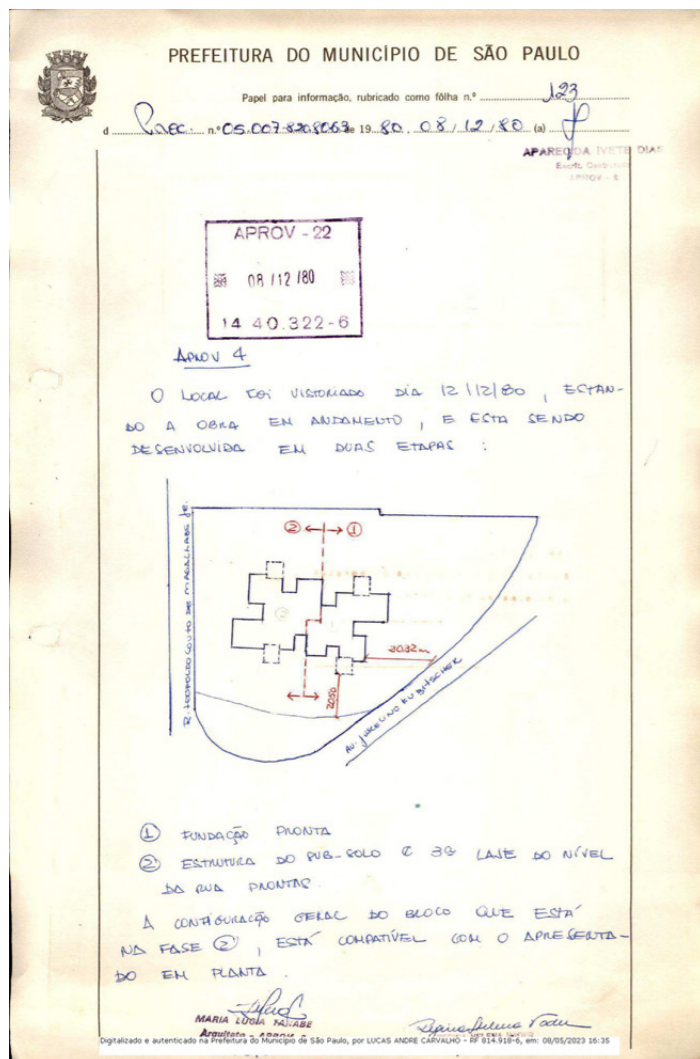 PREFEITURA DO MUNICÍPIO DE SÃO PAULO
Papel para informação, rubricado como fôlha n.º 123
d Proc. n.º 05.007-820.80*63 de 1980, 08/12/80 (a)
APARECIDA IVETE DIAS
APROV - 22
08/12/80
14 40.322-6
APROV 4
O LOCAL FOI VISTORIADO DIA 12/12/80, ESTAN-
DO A OBRA EM ANDAMENTO, E ESTA SENDO
DESENVOLVIDA EM DUAS ETAPAS :
② ← → ①
R. LEOPOLDO COUTO DE MAGALHAES JR.
2032m
2050
AV. JUCELINO KUBITSCHEK
① FUNDAÇÃO PRONTA
② ESTRUTURA DO SUB-SOLO E 3ª LAJE DO NÍVEL
DA RUA PRONTAS.
A CONFIGURAÇÃO GERAL DO BLOCO QUE ESTÁ
NA FASE ②, ESTÁ COMPATÍVEL COM O APRESENTA-
DO EM PLANTA.
MARIA LUCIA TANABE
Arquiteto - APROV
Digitalizado e autenticado na Prefeitura do Município de São Paulo, por LUCAS ANDRE CARVALHO - RF 814.918-6, em: 08/05/2023 16:35